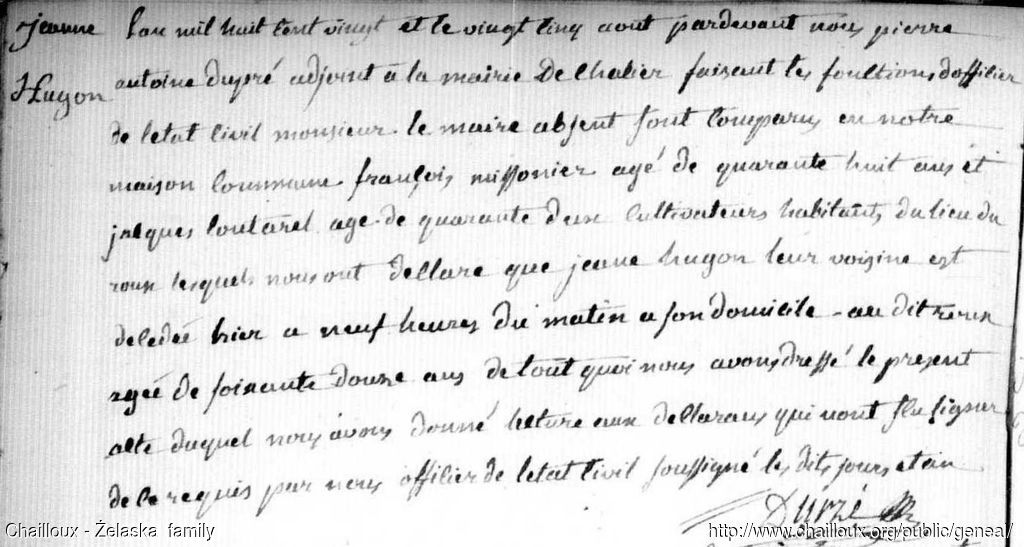 jeanne
hugon
Lan mil huit cent vingt et le vingt cinq aout pardevant nous pierre
antoine dupré adjoint à la mairie De Chalier faisant les fonctions dofficier
de letat Civil monsieur le maire absent sont Comparus en notre
maison Commune françois missonier agé de quarante huit ans et
jacques Coutarel age de quarante deux Cultivateurs habitants du lieu du
roux lesquels nous ont declare que jeane hugon leur voisine est
decedeé hier a neuf heures du matin a son domicile au dit
ageé de soixante douze ans de tout quoi nous avons dressé le present
acte duquel nous avons donné lecture aux declarans qui nont slu signer
de ce requis par nous officier de letat Civil soussigné les dits jours et an
Dupré
Chailloux - Żelaska family
http://www.chailloux.org/public/geneal/